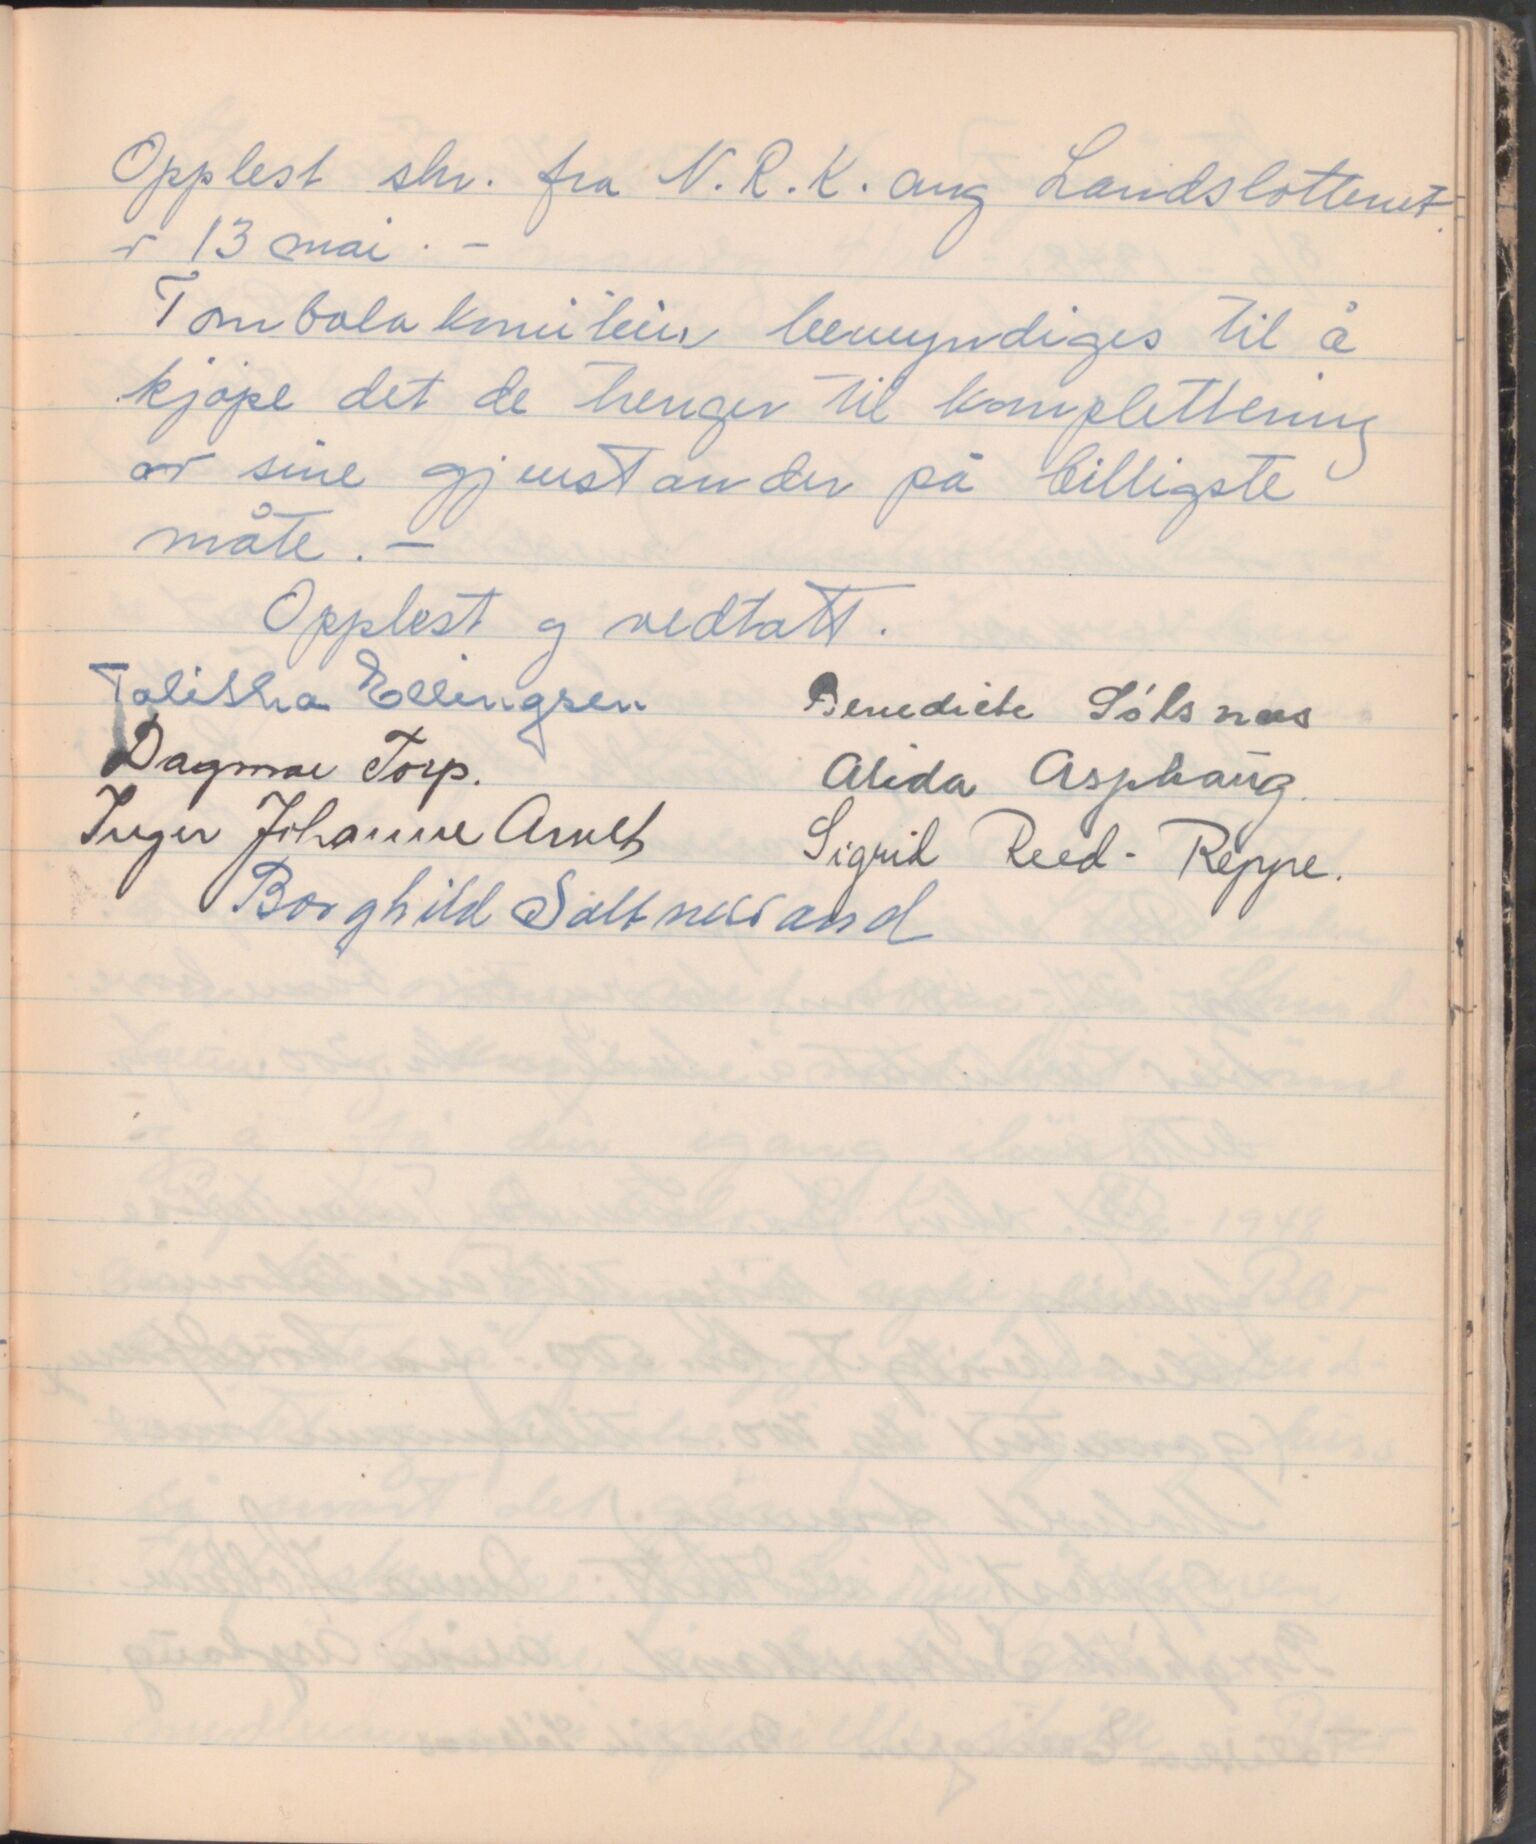 Opplest skr. fra N.R.K. ang Landslotteriet
av 13 mai. -
Tombolakomiteen bemyndiges til å
kjøpe det de trenger til komplettering
av sine gjenstander på billigste
måte. -
Opplest og vedtatt.
Talitha Ellingsen
Benedicte Sölsnæs
Dagmar Torp.
Alida Asphaug.
Inger Johanne Arndt
Sigrid Reed-Reppe.
Borghild Saltnessand